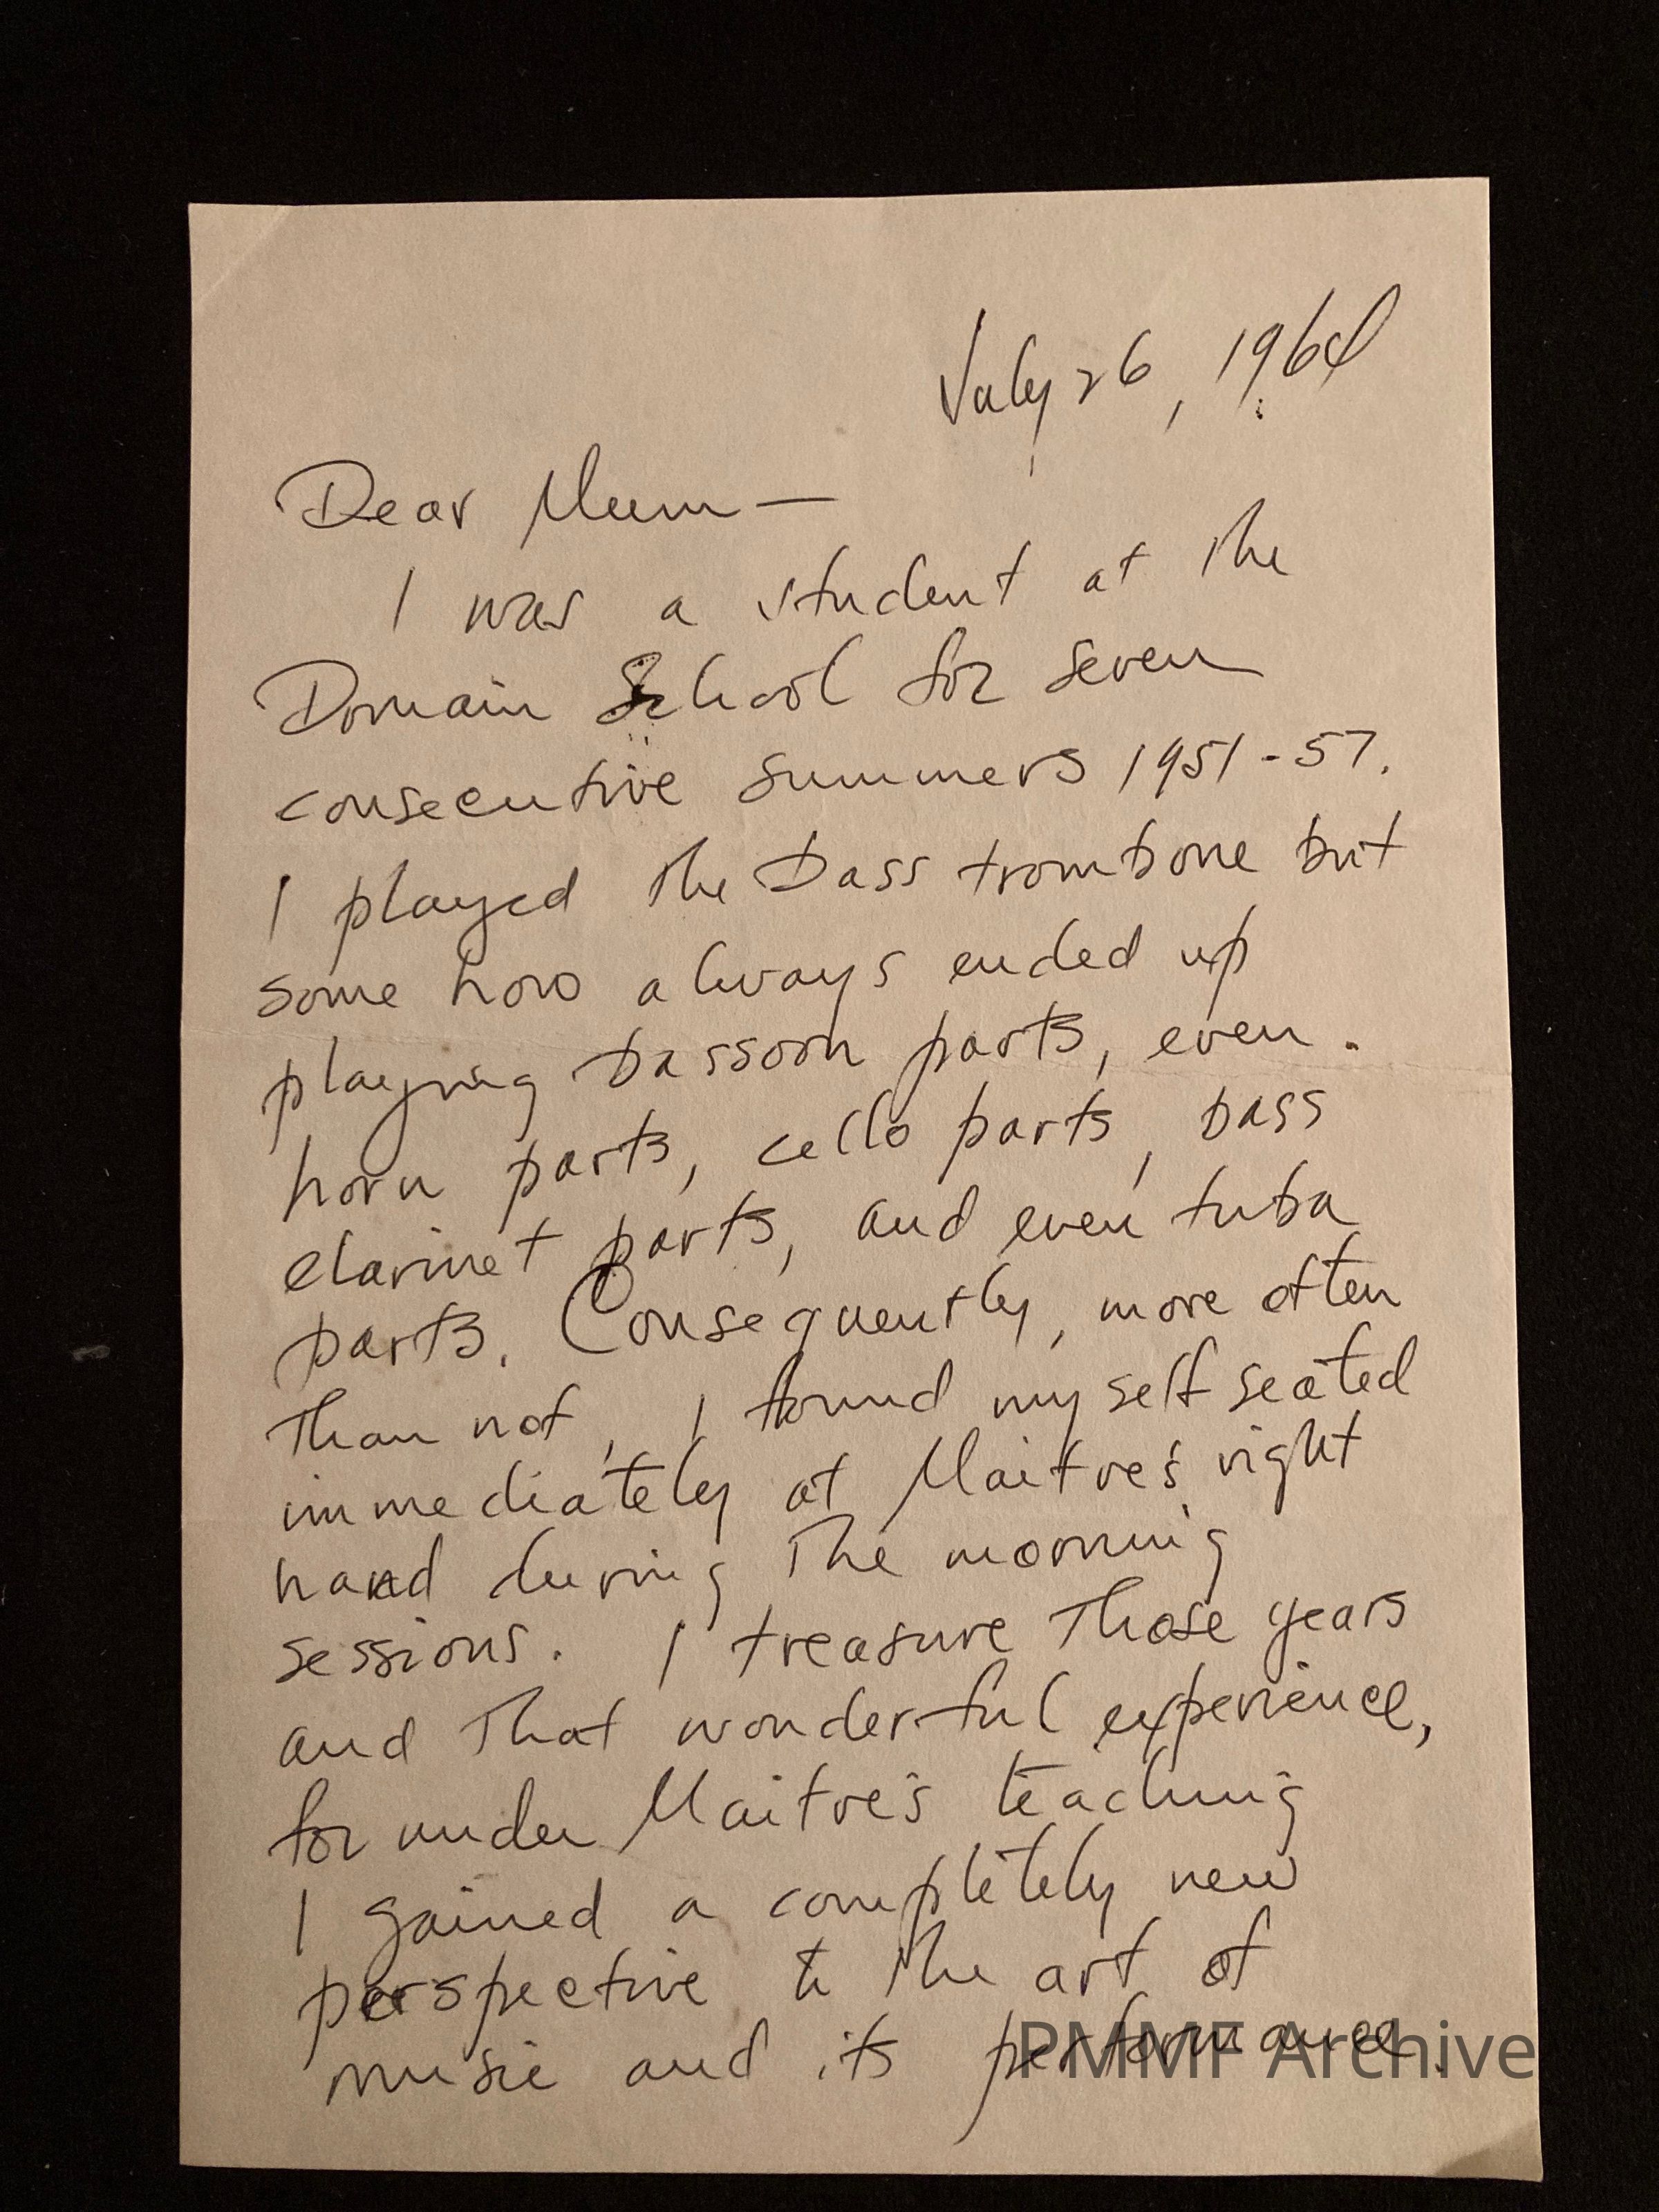 July 26, 1964
Dear Mum—
I was a student at the
Domain School for seven
consecutive summers 1951-57.
I played the bass trombone but
some how always ended up
playing bassoon parts, even
horn parts, cello parts, bass
clarinet parts, and even tuba
parts. Consequently, more often
than not, I found myself seated
immediately at Maitre's right
hand during the morning
sessions. I treasure those years
and that wonderful experience,
for under Maitre's teaching
I gained a completely new
perspective to the art of
music and its performance.
PMMF Archive